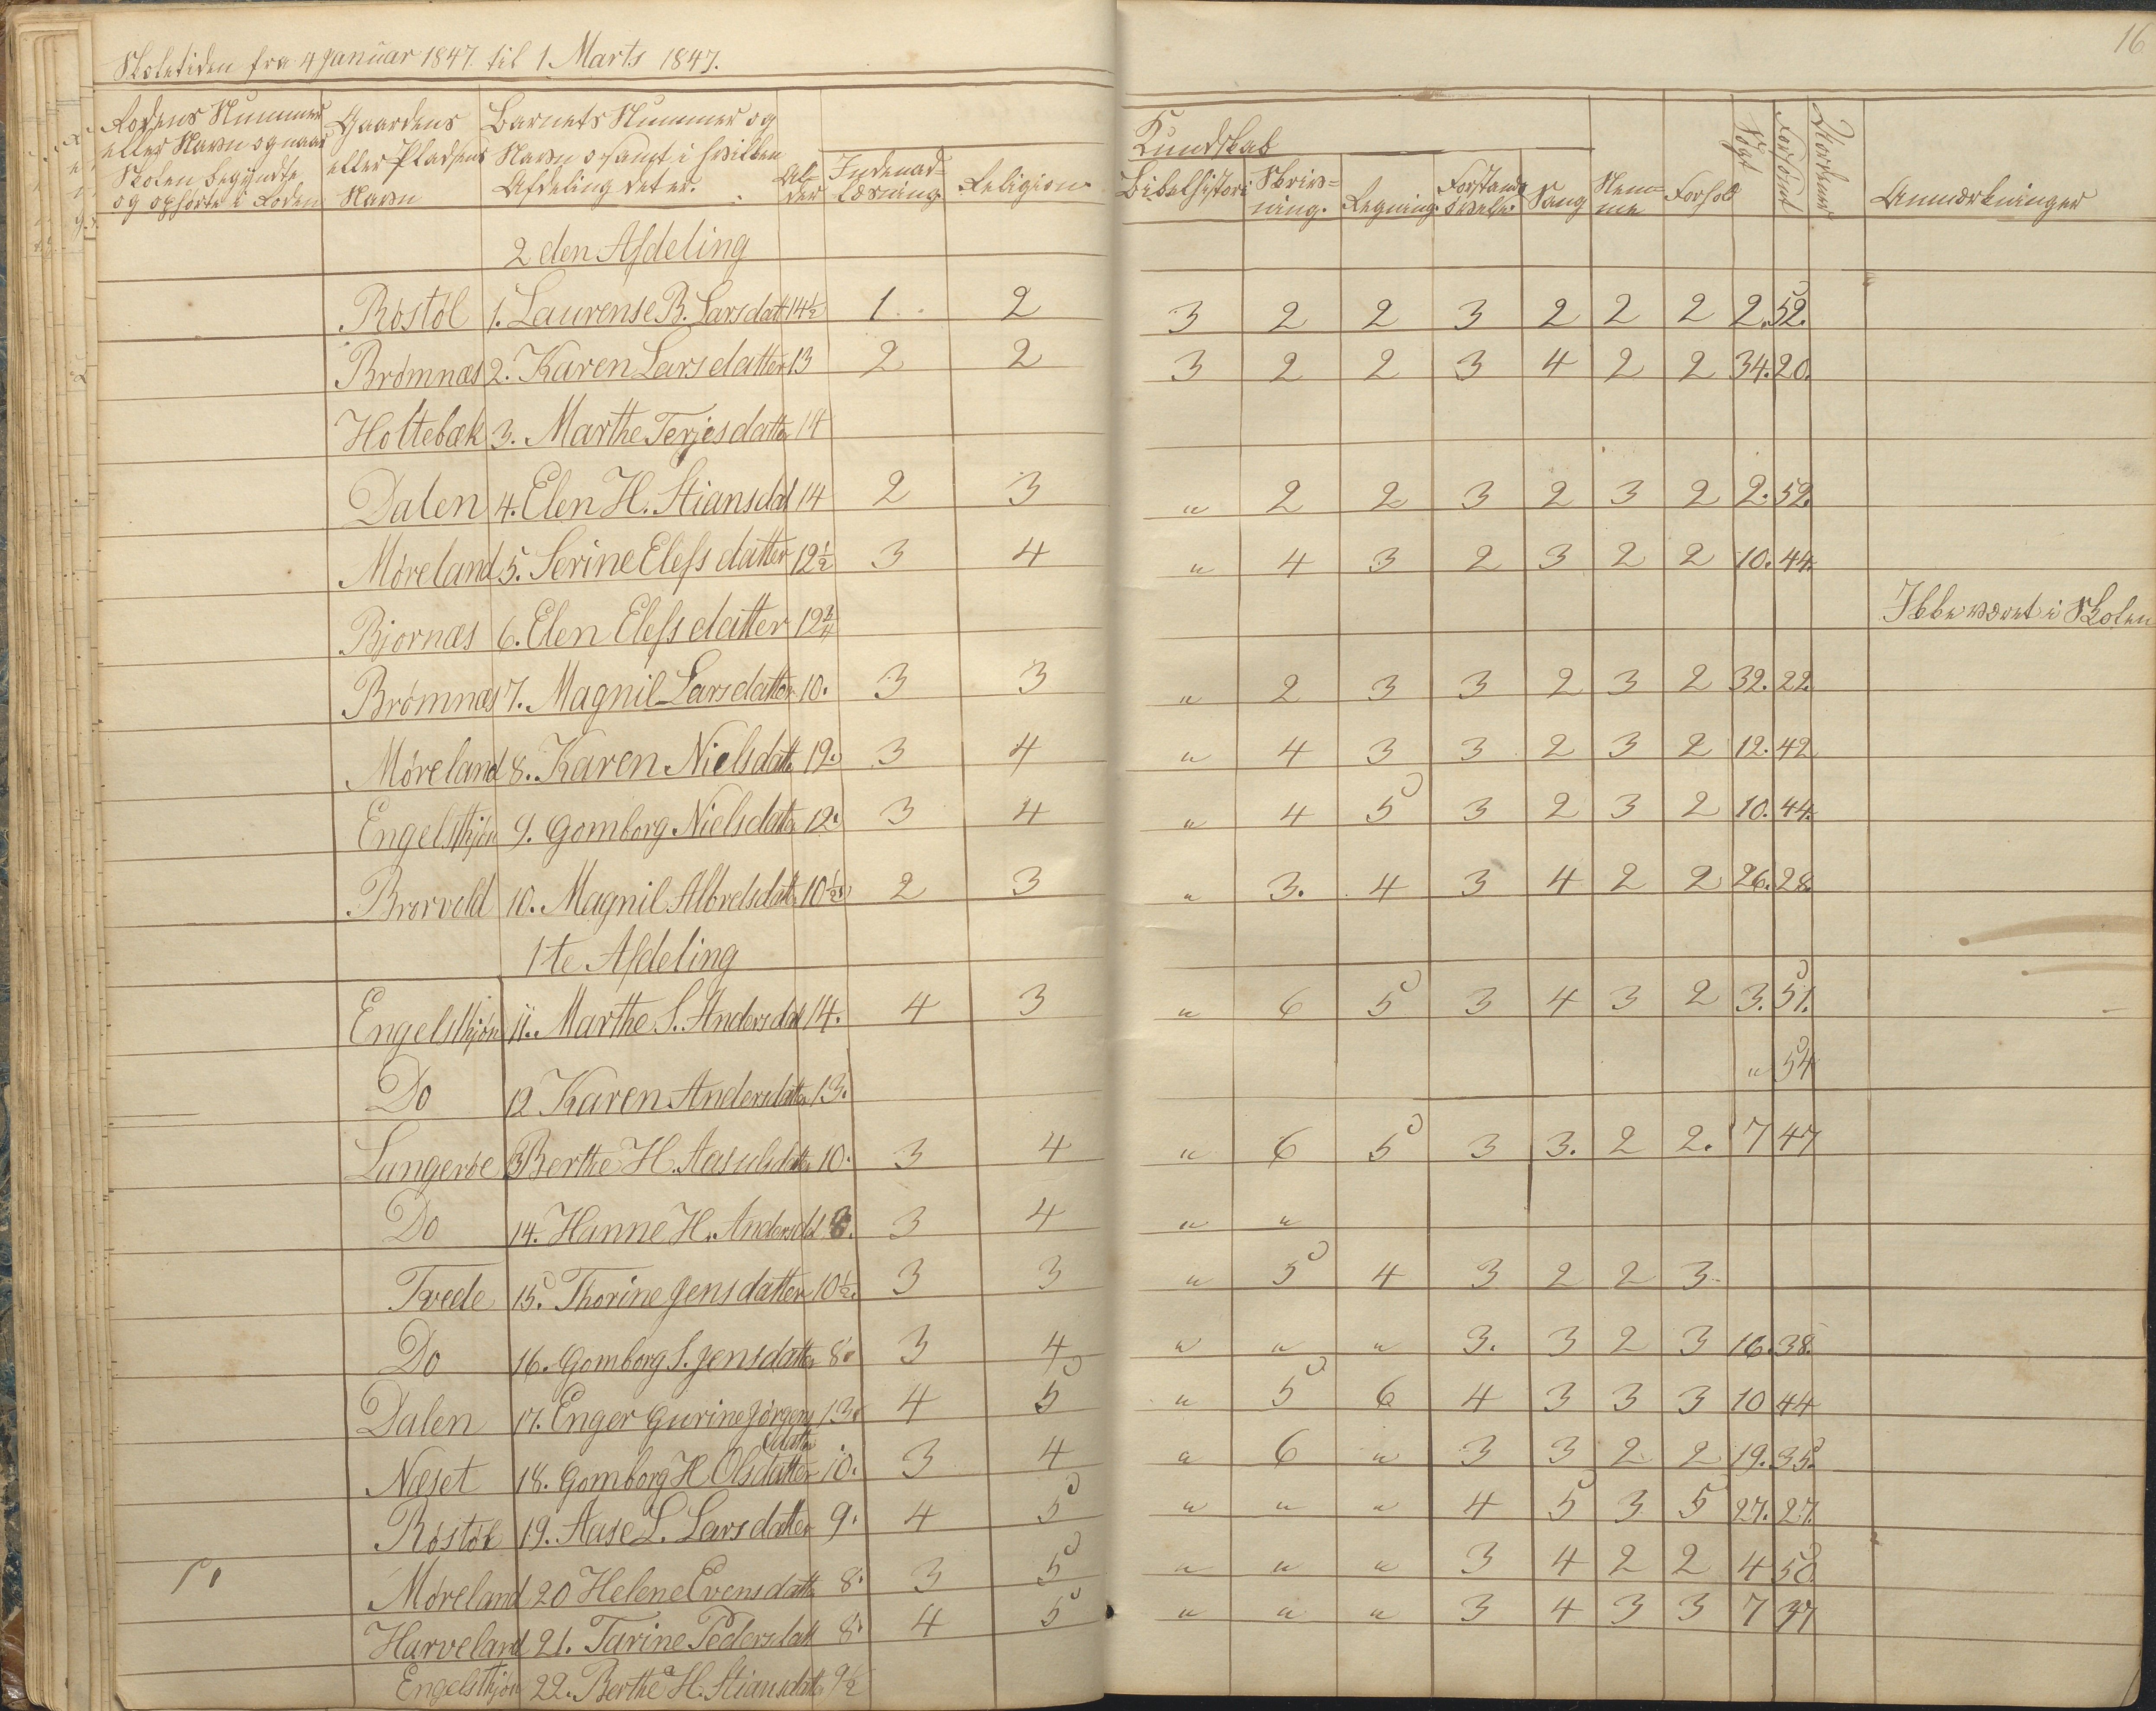 Skoletiden fra 4 Januar 1847. til 1 Marts 1847.
16
Rodens Nummer eller Navn og naar Skolen begyndte og ophørte i Roden
Gaardens eller Pladsens Navn
Barnets Nummer og Navn samt i hvilken Afdeling det er.
Al-der
Indenad-læsning
Religion
Kundskab
Bibelhistori
Skriv-ning.
Regning
Forstands øvelse
Sang
Nem-me
Forhold
Søgt
Forsømt
Anmærkninger
2den Afdeling
Røstøl 1. Laurense B. Larsdat 14½ 1 2 3 2 2 3 2 2 2 2. 52.
Brømnæs 2. Karen Larsdatter 13 2 2 3 2 2 3 4 2 2 34. 20.
Holtebæk 3. Marthe Terjesdatter 14
Dalen 4. Elen H. Stiansdat 14 2 3 " 2 2 3 2 3 2 2. 52.
Møreland 5. Serine Elefsdatter 12½ 3 4 " 4 3 2 3 2 2 10. 44.
Bjornæs 6. Elen Elefsdatter 12¾ Ikke været i Skolen
Brømnæs 7. Magnil Larsdatter 10. 3 3 " 2 3 3 2 3 2 32. 22.
Møreland 8. Karen Nielsdatter 12. 3 4 " 4 3 3 2 3 2 12. 42
Engelsthjøn 9. Gomborg Nielsdatter 12. 3 4 " 4 5 3 2 3 2 10. 44.
Brorvold 10. Magnil Albretsdatter 10½ 2 3 " 3. 4 3 4 2 2 26. 28.
1te Afdeling
Engelsthjøn 11. Marthe S. Andersdat 14. 4 3 " 6 5 3 4 3 2 3. 51.
Do 12 Karen Andersdatter 13. " 54
Lungerøe 13 Berthe H. Aasulsdatter 10. 3 4 " 6 5 3 3. 2 2. 7 47
Do 14. Hanne H. Andersdat 8. 3 4 " "
Tvede 15. Thorine Jensdatter 10½. 3 3 " 5 4 3 2 2 3
Do 16. Gomborg S. Jensdatter 8. 3 4 " " " 3. 3 2 3 16. 38.
Dalen 17. Enger Gurine Jørgensdatter 13. 4 5 " 5 6 4 3 3 3 10 44
Næset 18. Gomborg H Olsdatter 10. 3 4 " 6 " 3 3 2 2 19. 35.
Røstøl 19. Aase L. Larsdatter 9. 4 5 " " " 4 5 3 5 27. 27.
Møreland 20 Helene Evensdatter 8. 3 5 " " " 3 4 2 2 4 50.
Harveland 21. Tarine Pedersdatt 8. 4 5 " " " 3 4 3 3 7 47
Engelsthjøn 22. Berthe H. Stiansdatter 9½